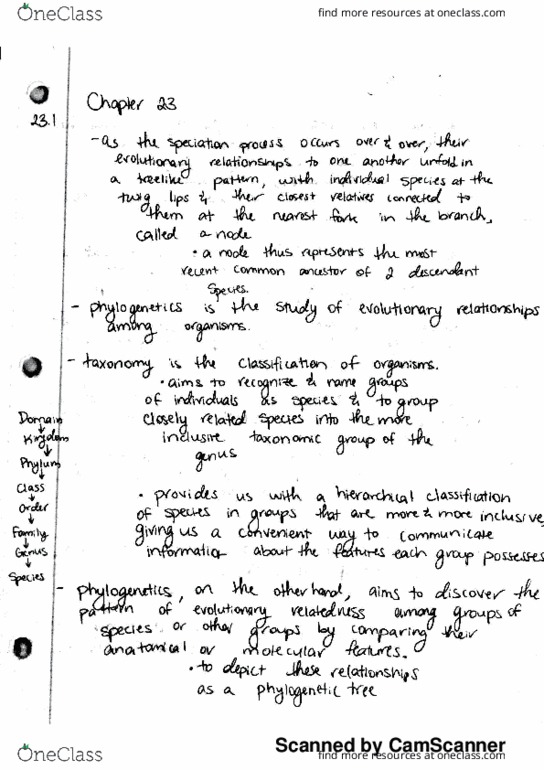 OneClass
find more resources at oneclass.com
Chapter 23
23.1
-as the speciation process occurs over & over, their
evolutionary relationships to one another unfold in
a treelike pattern, with individual species at the
twig tips & their closest relatives connected to
them at the nearest fork in the branch,
called a node
• a node thus represents the most
recent common ancestor of 2 descendant
species.
- phylogenetics is the study of evolutionary relationships
among organisms.
- taxonomy is the classification of organisms.
• aims to recognize & name groups
of individuals as species & to group
closely related species into the more
inclusive taxonomic group of the
genus
Domain
↓
Kingdom
↓
Phylum
↓
Class
↓
Order
↓
Family
↓
Genus
↓
Species
• provides us with a hierarchical classification
of species in groups that are more & more inclusive,
giving us a convenient way to communicate
information about the features each group possesses
- phylogenetics, on the other hand, aims to discover the
pattern of evolutionary relatedness among groups of
species or other groups by comparing their
anatomical or molecular features.
• to depict these relationships
as a phylogenetic tree
Scanned by CamScanner
OneClass
find more resources at oneclass.com